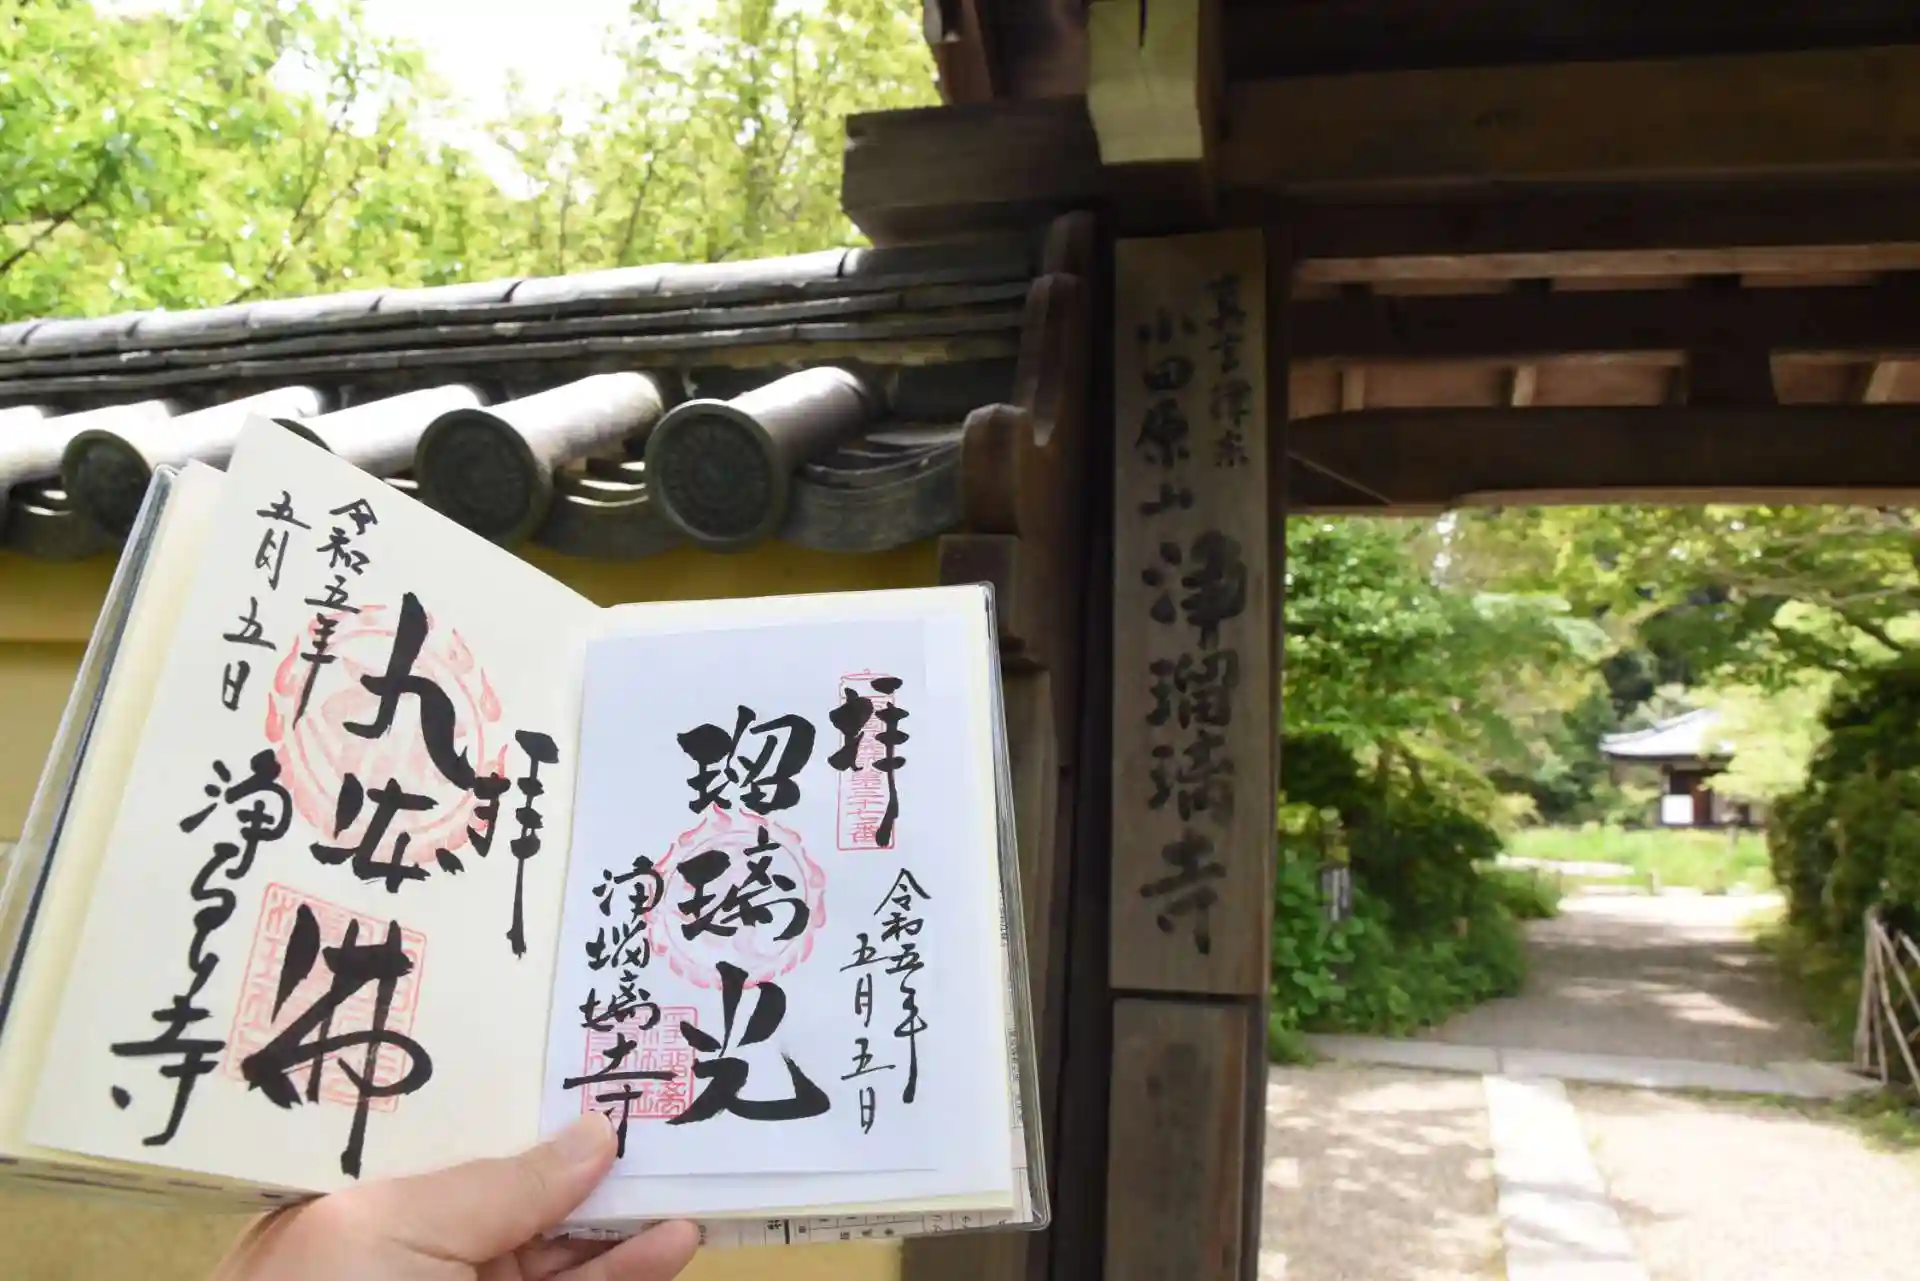 拝
九体
佛
令和五年
五月五日
浄る り寺
拝
令和五年
五月五日
瑠璃光
浄瑠璃寺
真言律宗
小田原山 浄瑠璃寺